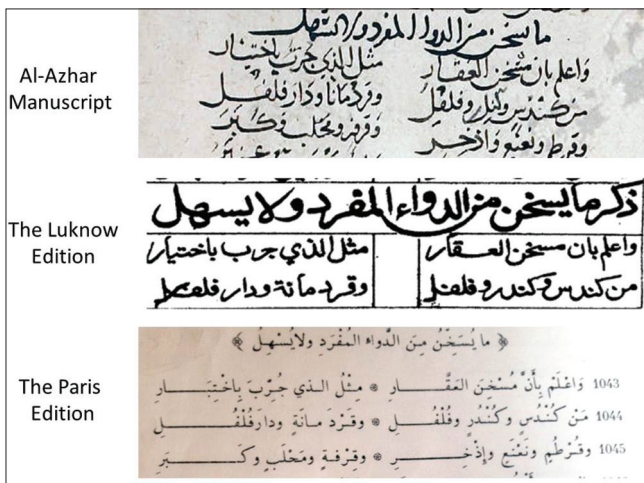 Al-Azhar
Manuscript
ما يسخن من الدواء المفرد ولا يسهل
واعلم بان مسخن العقار مثل الذي جرب باختيار
من كندس وكندر وفلفل وقردمانا ودار فلفل
وقرطم ونعنع واذخر وقرفة ومحلب وكبر
The Luknow
Edition
ذكر ما يسخن من الدواء المفرد ولا يسهل
واعلم بان مسخن العقار مثل الذي جرب باختيار
من كندس وكندر وفلفل وقرد مانة ودار فلفل
The Paris
Edition
﴿ ما يُسَخِّنُ مِنَ الدَّواءِ المُفْرَدِ ولايُسْهِلُ ﴾
1043 وَاعْلَمْ بِأَنَّ مُسْخِنَ العَقَّارِ * مِثْلُ الذي جُرِّبَ بِاخْتِبَارِ
1044 مَنْ كُنْدُسٍ وكُنْدُرٍ وفُلْفُلِ * وقَرْدَ مانَةٍ ودارَفُلْفُلِ
1045 وقُرْطُمٍ ونَعْنَعٍ وإِذْخِرِ * وقِرْفَةٍ ومَحْلَبٍ وكَبَرِ